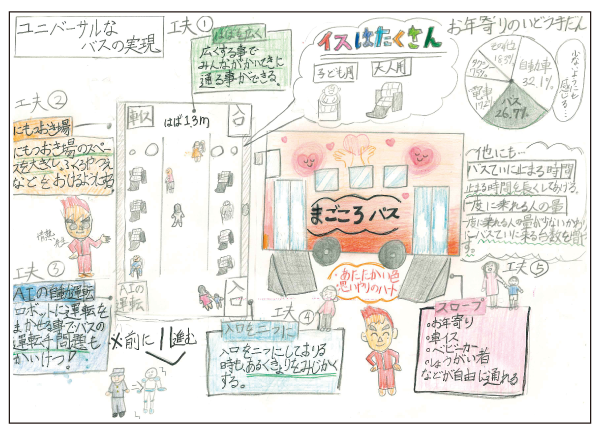 ユニバーサルな
バスの実現
工夫①
はばを広く
広くする事で
みんながかいてきに
通る事ができる。
イスはたくさん
子ども用
大人用
お年寄りのいどうきだん
その他
自動車
32.1%
バス
26.7%
電車
タクシー
少ないように
感じる…
工夫②
にもつおき場
にもつおき場のスペー
スを大きくし、ふくろやつえ
などをおけるようにする。
車イス
はば1.3m
入口
AIの
運転
入口
まごころバス
あたたかい色
思いやりのハート
〜他にも…
バスていに止まる時間
止まる時間を長くしてあげる。
一度に乗れる人の量
一度に乗れる人の量が少ないかわり
にバスていに来る台数を増や
す。
工夫③
AIの自動運転
ロボットに運転を
まかせる事でバスの
運転手問題も
かいけつ!
※前に進む
工夫④
入口を二つに
入口を二つにしており
時も、あるくきょりをみじかく
する。
工夫⑤
スロープ
・お年寄り
・車イス
・ベビーカー
・しょうがい者
などが自由に通れる